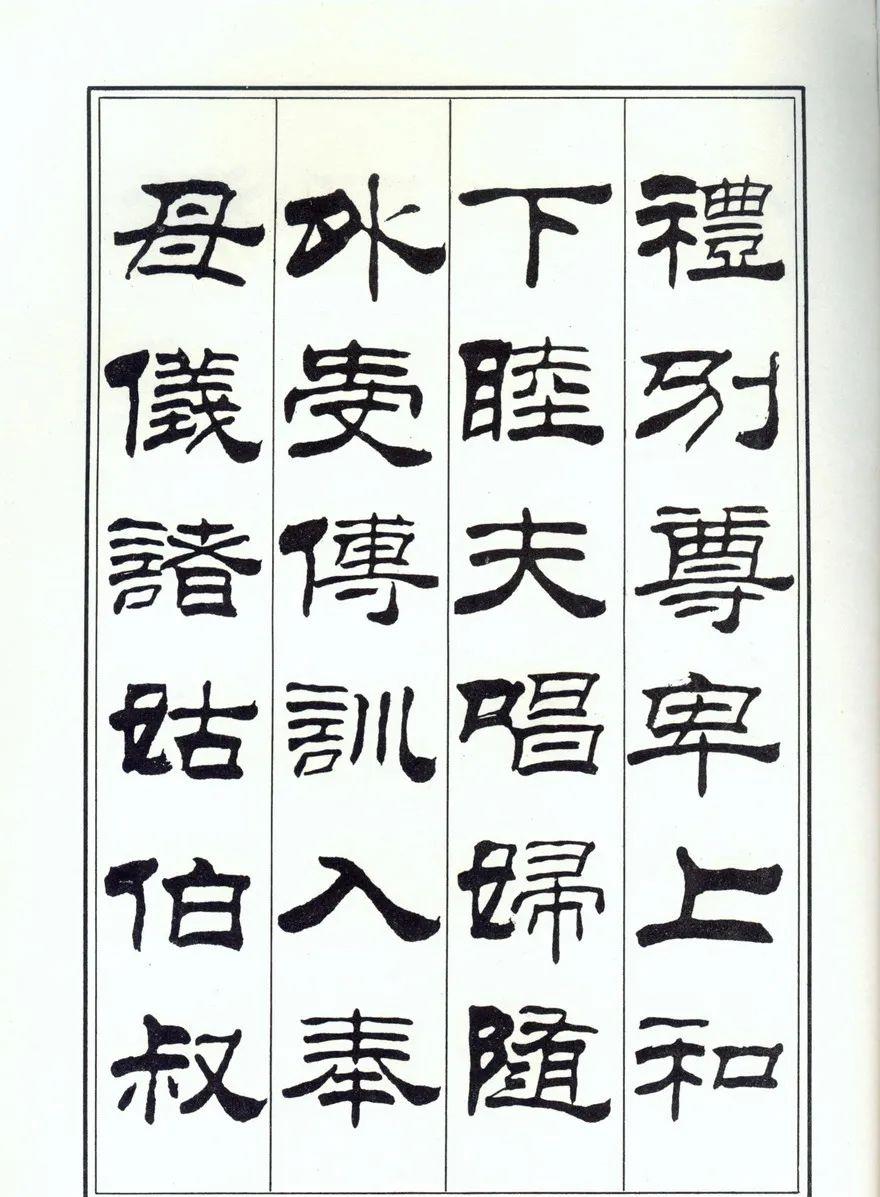 禮別尊卑上和
下睦夫唱婦隨
外受傅訓入奉
母儀諸姑伯叔